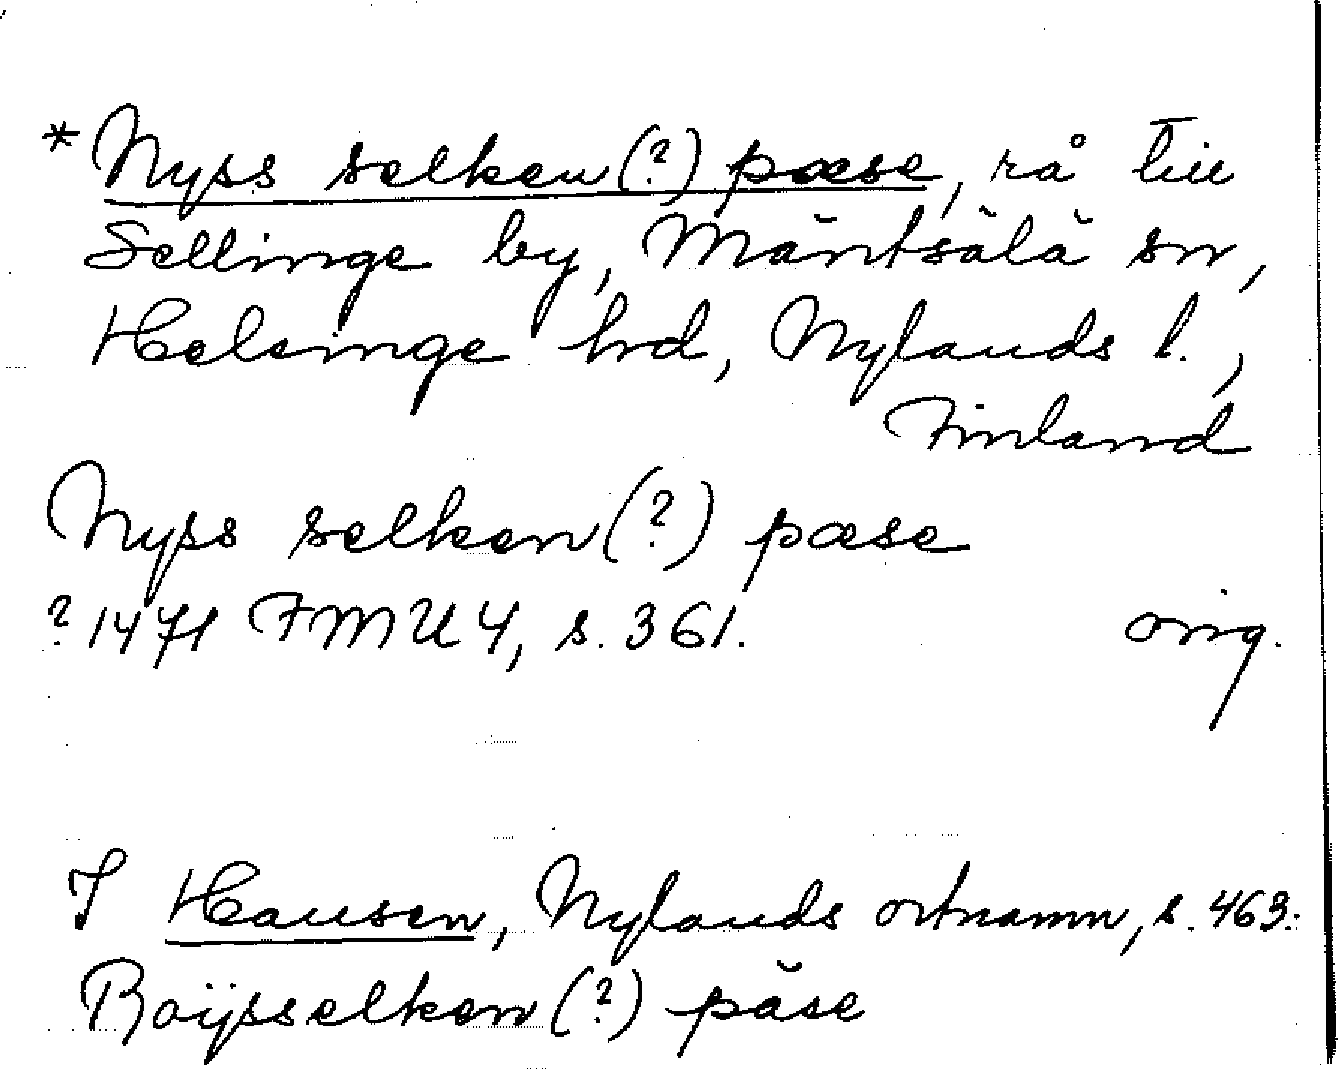 * Nyss selken(?) pæse, rå till
Sellinge by, Mäntsälä sn,
Helsinge hrd, Nylands l.,
Finland
Nyss selken(?) pæse
? 1471 FMU 4, s. 361. orig.
I Hausen, Nylands ortnamn, s. 463:
Boÿsselken (?) päse